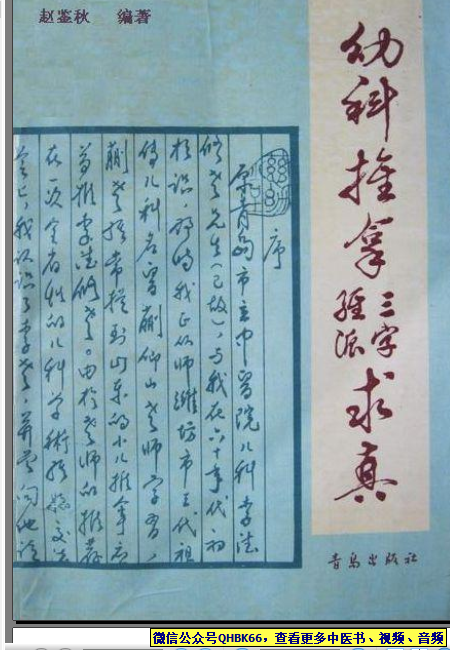 赵鉴秋 编著
幼科推拿三字经派求真
序
原青岛市立中医院儿科李德
修老先生(已故),与我在六十年代初
相识,那时我正从师潍坊市三代祖
传儿科名医蒯仰山老师学习,
蒯老经常提到山东的小儿推拿应
首推李德修老。由于老师的推荐
在一次全省性的儿科学术经验交流
会上,我认识了李老,并
青岛出版社
微信公众号QHBK66,查看更多中医书、视频、音频